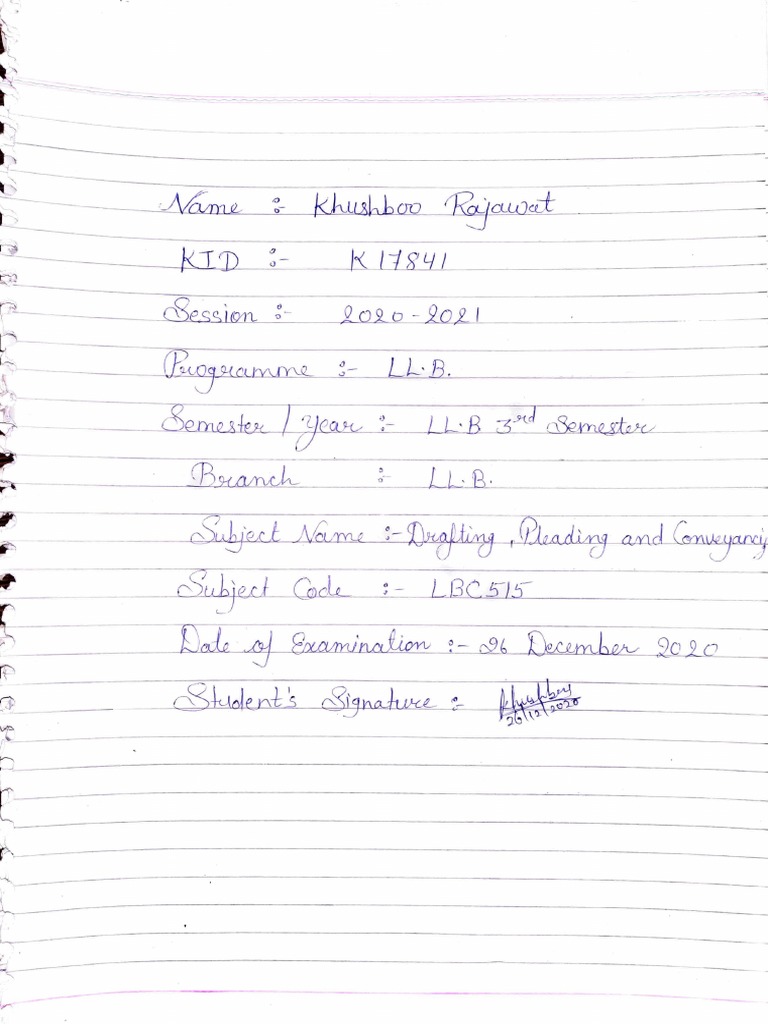 Name :- Khushboo Rajawat
KID :- K17841
Session :- 2020-2021
Programme :- LL.B.
Semester / Year :- LL.B 3rd Semester
Branch :- LL.B.
Subject Name :- Drafting, Pleading and Conveyancing
Subject Code :- LBC515
Date of Examination :- 26 December 2020
Student's Signature :- Khushboo
26/12/2020